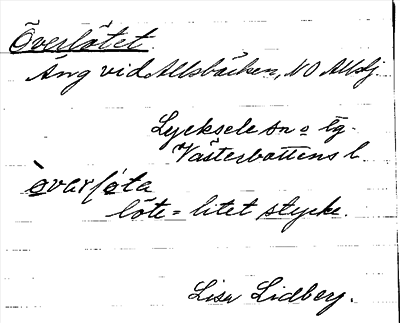 Överlötet.
Äng vid Allsbäcken, NO Allsj.
Lycksele sn o tg.
Västerbottens l.
òvarlòta
löte = litet stycke.
Lisa Lidberg.